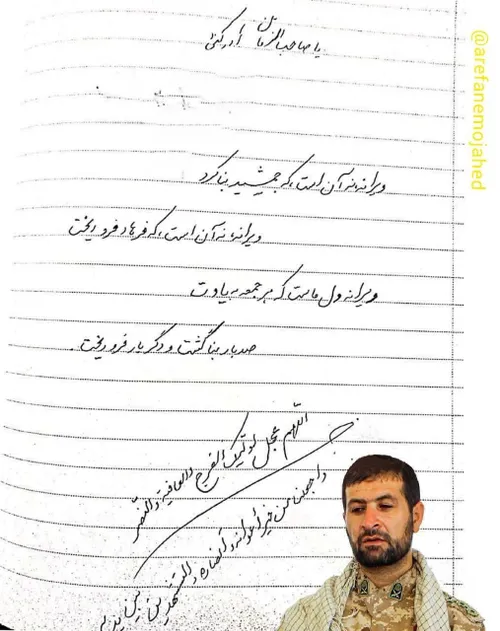 یا صاحب الزمان ادرکنی
ویرانه نه آن است که جمشید بنا کرد
ویرانه نه آن است که فرهاد فرو ریخت
ویرانه دل ماست که هر جمعه به یادت
صد بار بنا گشت و دگر بار فرو ریخت.
اللهم عجل لولیک الفرج والعافیة والنصر
واجعلنا من خیر اعوانه وانصاره والمستشهدین بین یدیه
@arefanemojahed